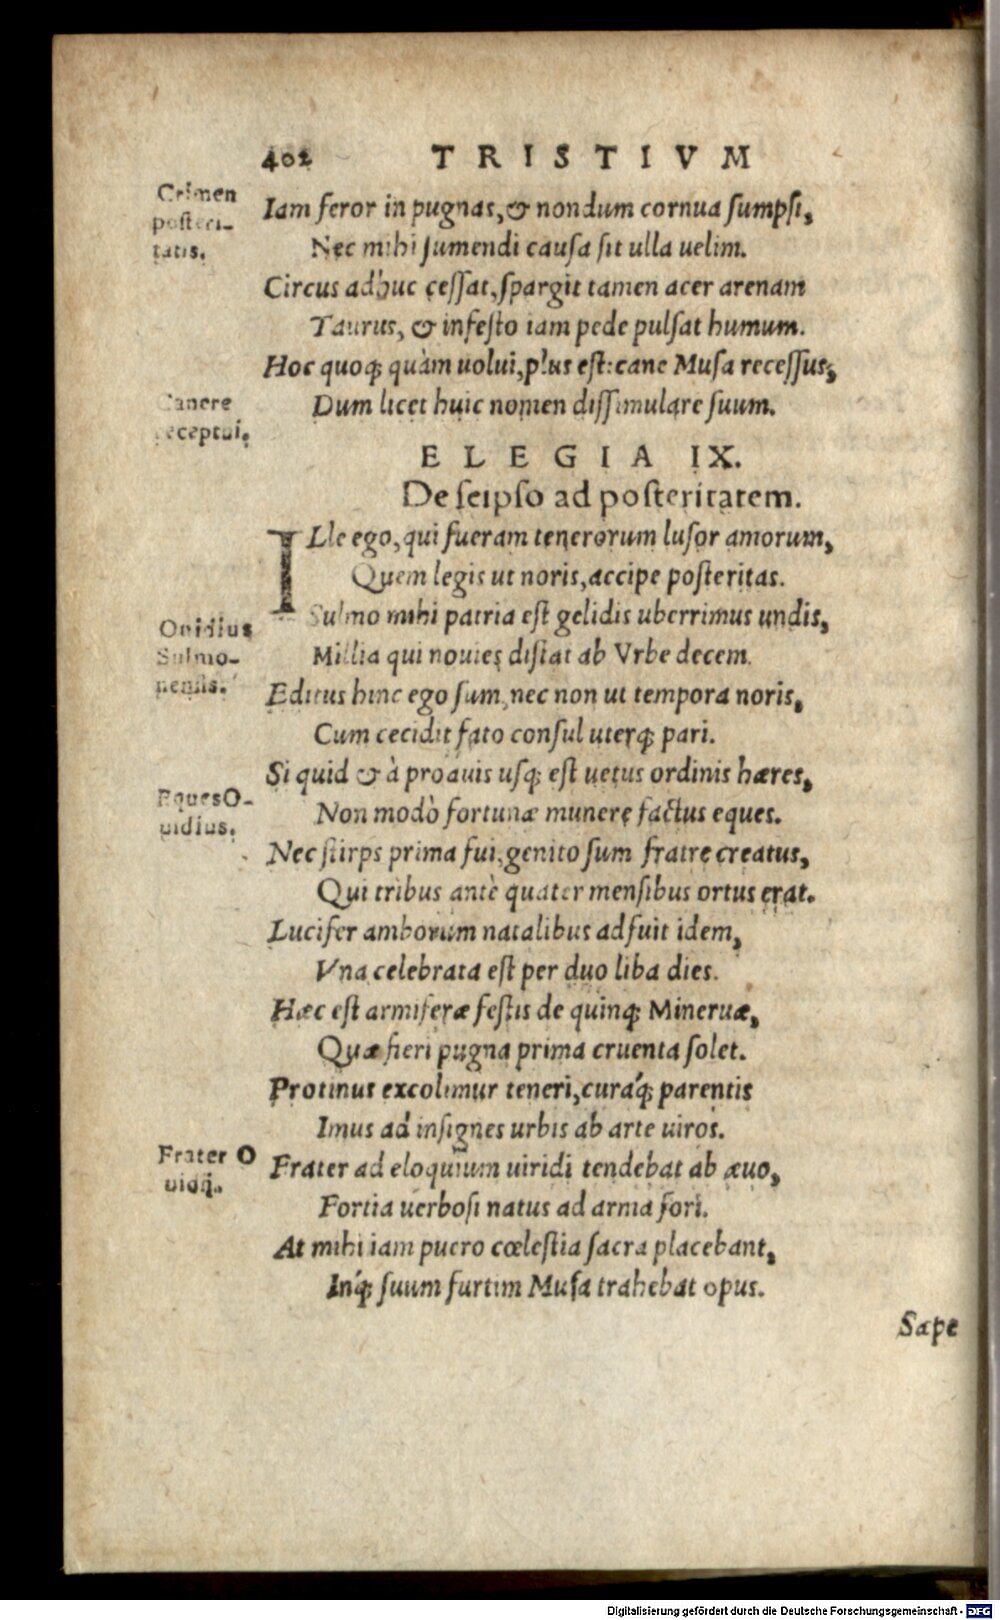 402 TRISTIVM
Crimen
posteri-
tatis.
Iam feror in pugnas, & nondum cornua sumpsi,
Nec mihi sumendi causa sit ulla uelim.
Circus adhuc cessat, spargit tamen acer arenam
Taurus, & infesto iam pede pulsat humum.
Hoc quoq; quàm uolui, plus est: cane Musa recessus,
Dum licet huic nomen dissimulare suum.
Canere
receptui.
ELEGIA IX.
De seipso ad posteritatem.
ILle ego, qui fueram tenerorum lusor amorum,
Quem legis ut noris, accipe posteritas.
Sulmo mihi patria est gelidis uberrimus undis,
Millia qui nouies distat ab Vrbe decem.
Ouidius
Sulmo-
nensis.
Editus hinc ego sum, nec non ut tempora noris,
Cum cecidit fato consul uterq; pari.
Si quid & à proauis usq; est uetus ordinis hæres,
Non modò fortunæ munere factus eques.
Eques O-
uidius.
Nec stirps prima fui, genito sum fratre creatus,
Qui tribus antè quater mensibus ortus erat.
Lucifer amborum natalibus adfuit idem,
Vna celebrata est per duo liba dies.
Hæc est armiferæ festis de quinq; Mineruæ,
Quæ fieri pugna prima cruenta solet.
Protinus excolimur teneri, curáq; parentis
Imus ad insignes urbis ab arte uiros.
Frater O
uidij.
Frater ad eloquium uiridi tendebat ab æuo,
Fortia uerbosi natus ad arma fori.
At mihi iam puero cœlestia sacra placebant,
Inq́; suum furtim Musa trahebat opus.
Sæpe
Digitalisierung gefördert durch die Deutsche Forschungsgemeinschaft - DFG